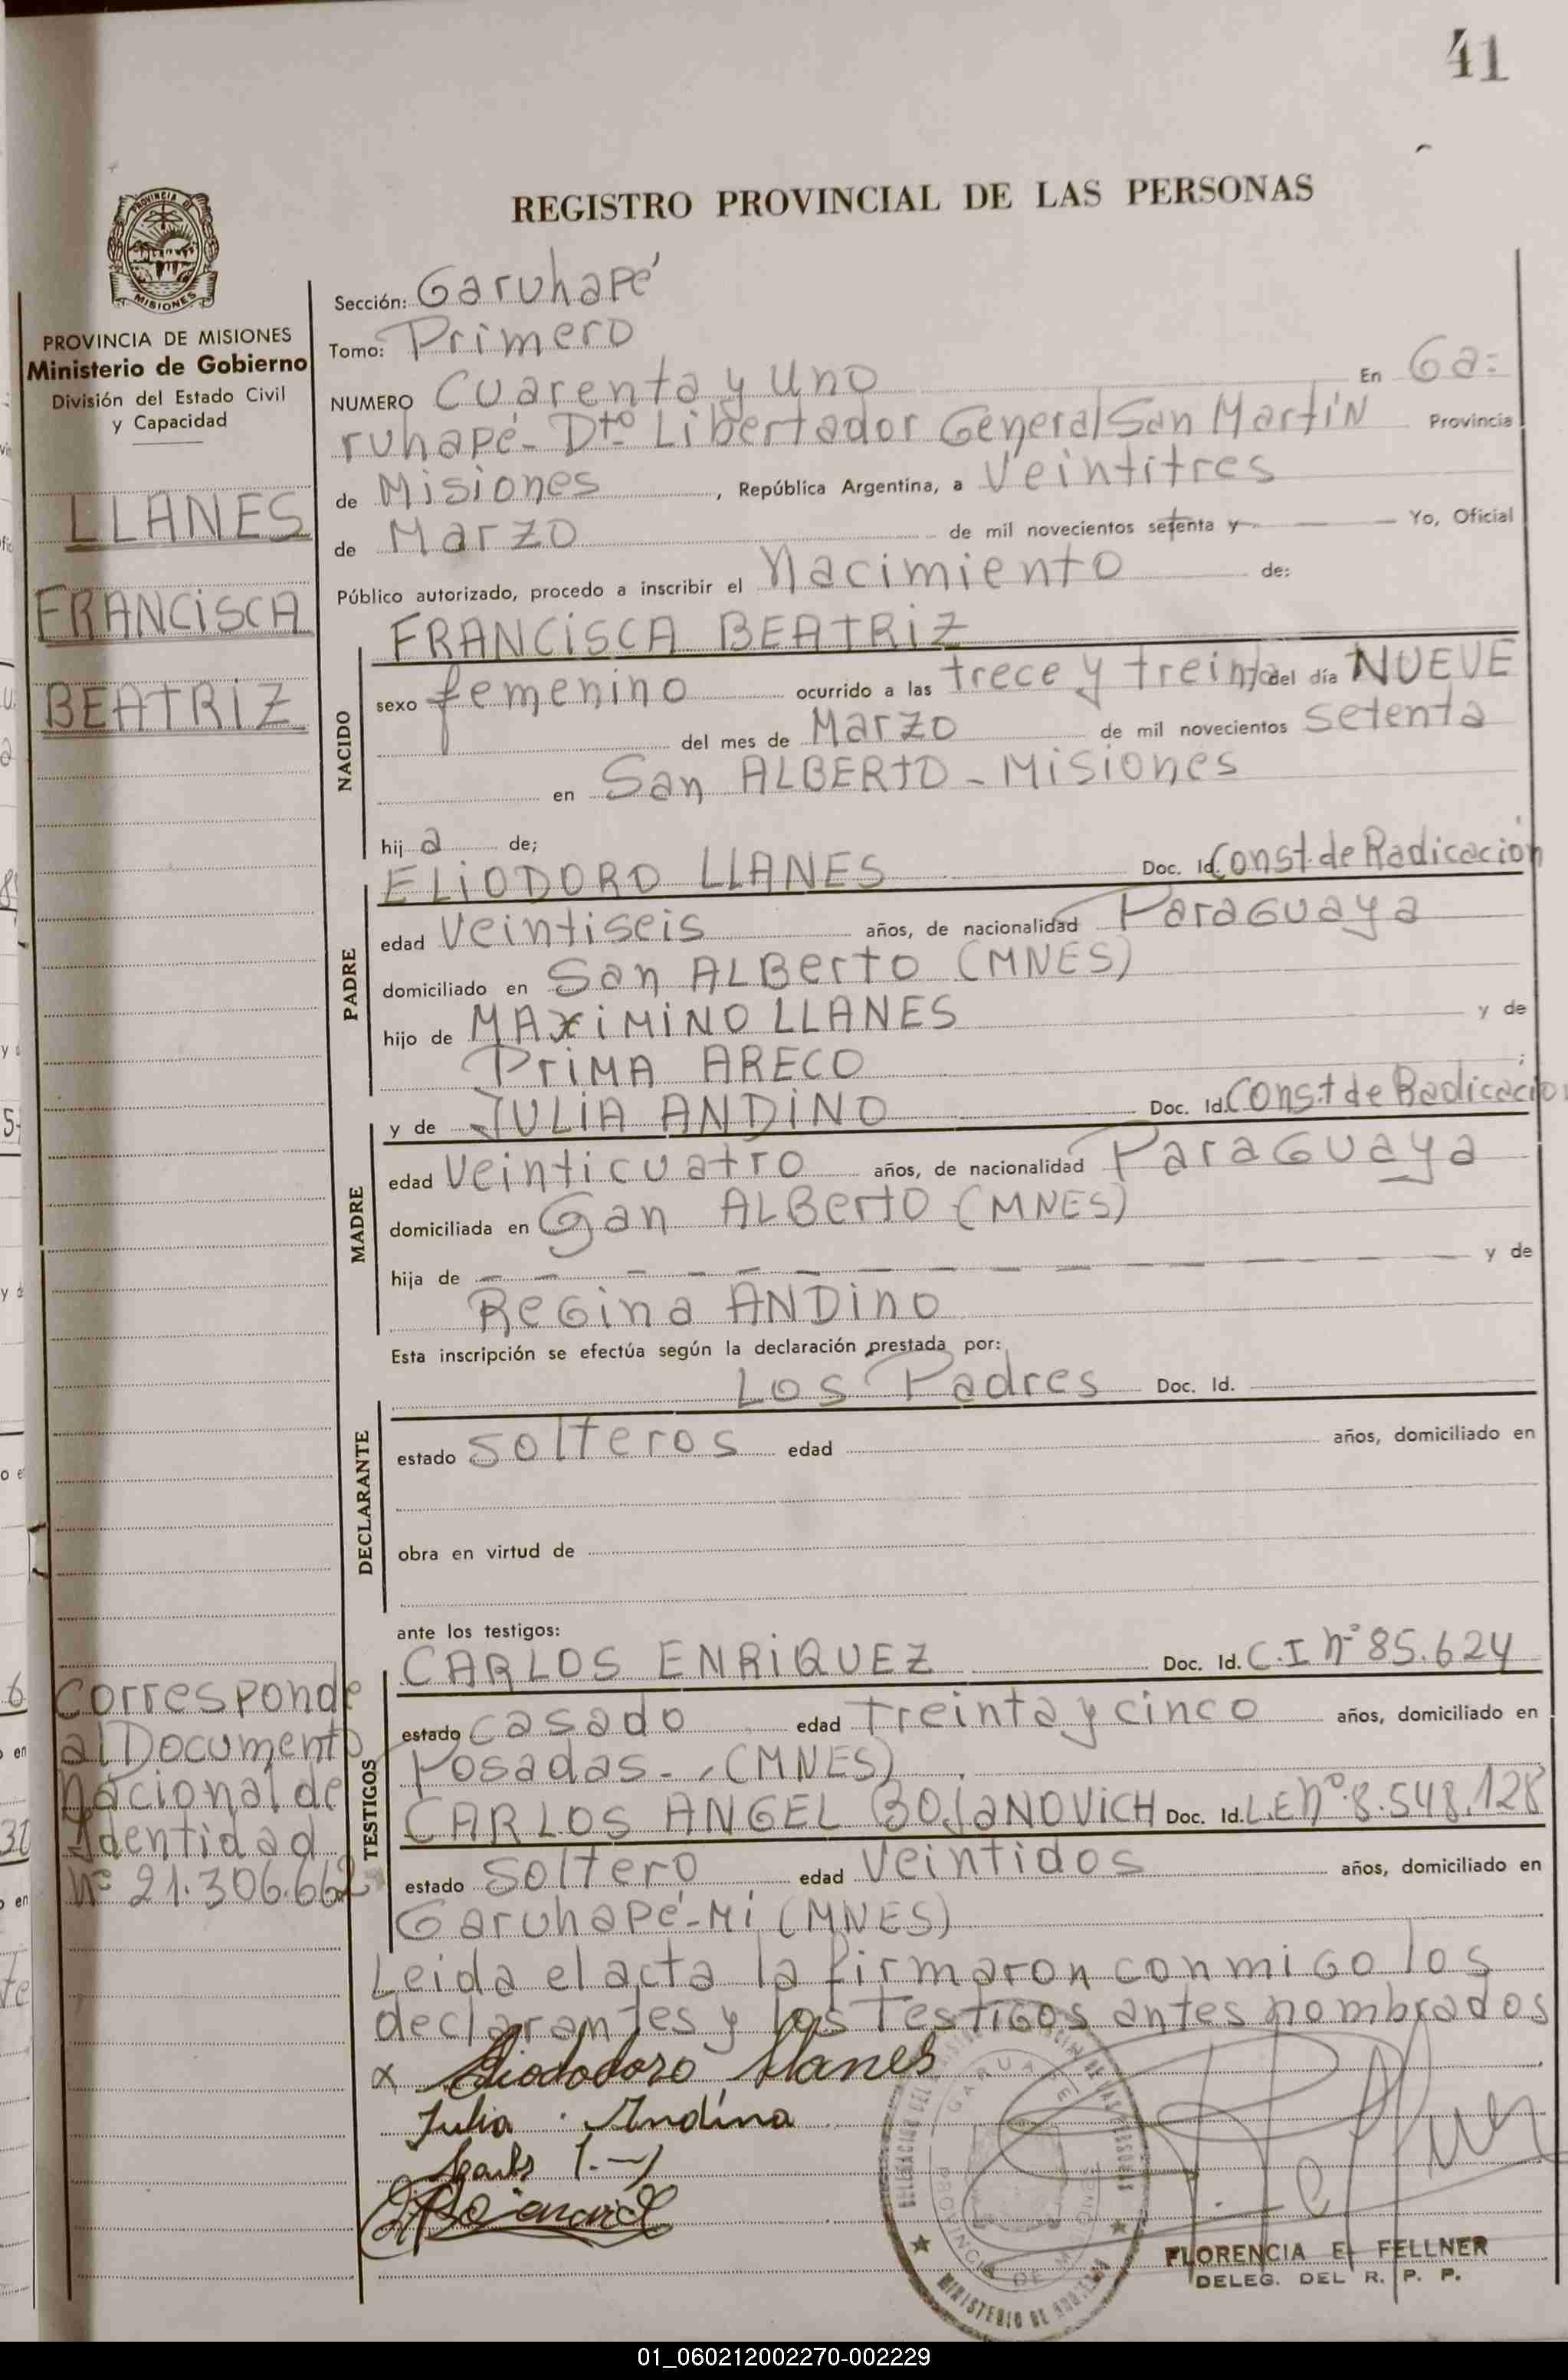 41
REGISTRO PROVINCIAL DE LAS PERSONAS
PROVINCIA DE
MISIONES
PROVINCIA DE MISIONES
Ministerio de Gobierno
División del Estado Civil
y Capacidad
LLANES
FRANCISCA
BEATRIZ
Sección: Garuhapé
Tomo: Primero
NUMERO Cuarenta y uno En Ga=
ruhapé- Dtº Libertador General San Martín Provincia
de Misiones, República Argentina, a Veintitres
de Marzo de mil novecientos setenta y Yo, Oficial
Público autorizado, procedo a inscribir el Nacimiento de:
NACIDO
FRANCISCA BEATRIZ
sexo femenino ocurrido a las trece y treinta del día NUEVE
del mes de Marzo de mil novecientos setenta
en San ALBERTO - Misiones
hij a de;
PADRE
ELIODORO LLANES Doc. Id. Const. de Radicacion
edad Veintiseis años, de nacionalidad Paraguaya
domiciliado en San ALBerto (MNES)
hijo de MAXIMINO LLANES y de
PriMA ARECO
MADRE
y de JULIA ANDINO Doc. Id. Const de Radicacion
edad Veinticuatro años, de nacionalidad Paraguaya
domiciliada en San ALBerto (MNES)
hija de — — — — — — — — — y de
Regina ANDino
Esta inscripción se efectúa según la declaración prestada por:
DECLARANTE
Los Padres Doc. Id.
estado solteros edad años, domiciliado en
obra en virtud de
ante los testigos:
TESTIGOS
CARLOS ENRIQUEZ Doc. Id. C.I nº 85.624
estado casado edad treinta y cinco años, domiciliado en
Posadas-, (MNES)
CARLOS ANGEL BOJANOVICH Doc. Id. L.E nº 8.548.128
estado soltero edad Veintidos años, domiciliado en
Garuhapé-Mí (MNES)
Corresponde
al Documento
nacional de
Identidad
Nº 21.306.662
Leida el acta la firmaron conmigo los
declarantes y los Testigos antes nombrados
x Eliododoro Llanes
Julia Andina
PROVINCIA DE
MINISTERIO DE
FLORENCIA E. FELLNER
DELEG. DEL R. P. P.
01_060212002270-002229